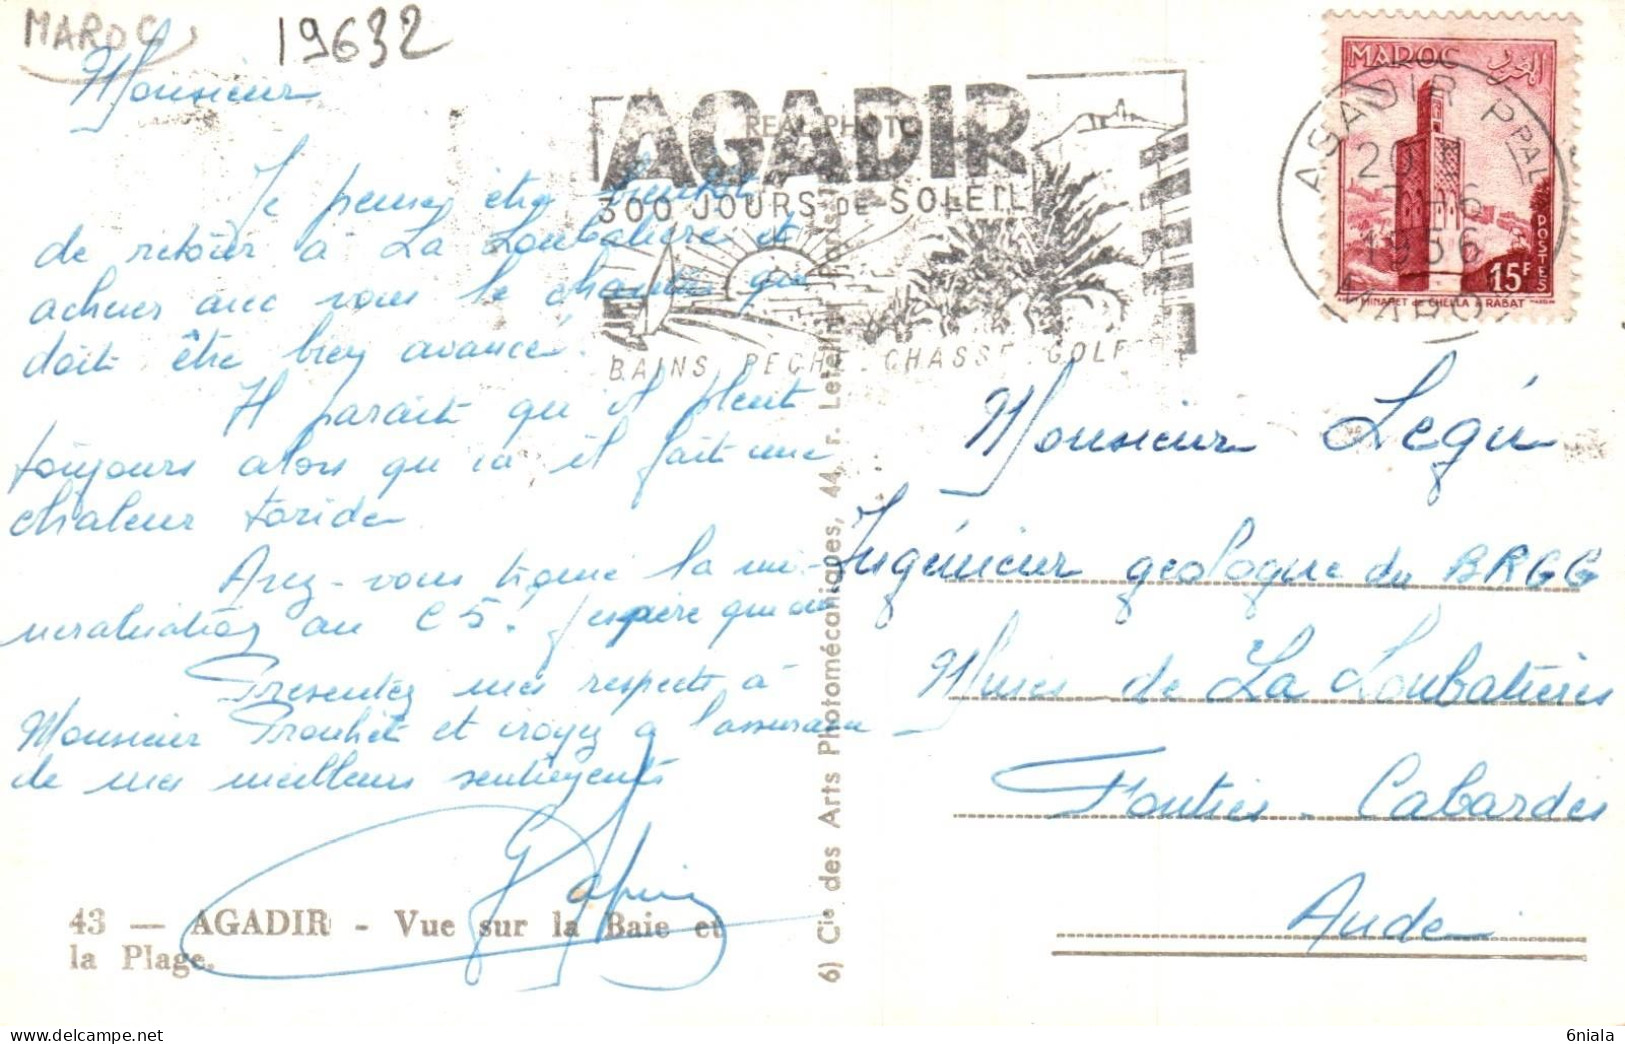 MAROC
19632
Monsieur
Je pense être bientôt
de retour à La Loubatière et
achever avec vous le chantier qui
doit être bien avancé.
Il parait qu'il pleut
toujours alors qu'ici il fait une
chaleur toride
Avez-vous trouvé la mi-
néralisation au C5! J'espère que oui.
Presentez mes respects à
Monsieur Prouhèt et croyez à l'assurance
de mes meilleurs sentiments
43 — AGADIR - Vue sur la Baie et
la Plage.
6) Cie des Arts Photomécaniques, 44, r. Letellier
REAL PHOTO
AGADIR
300 JOURS DE SOLEIL
BAINS PECHE CHASSE GOLF
MAROC
POSTES
15F
MINARET de CHELLA à RABAT
AGADIR PPAL
1956
MAROC
Monsieur Legu
Ingénieur géologue du BRGG
Mines de La Loubatières
Fontiès-Cabardès
Aude
6niala